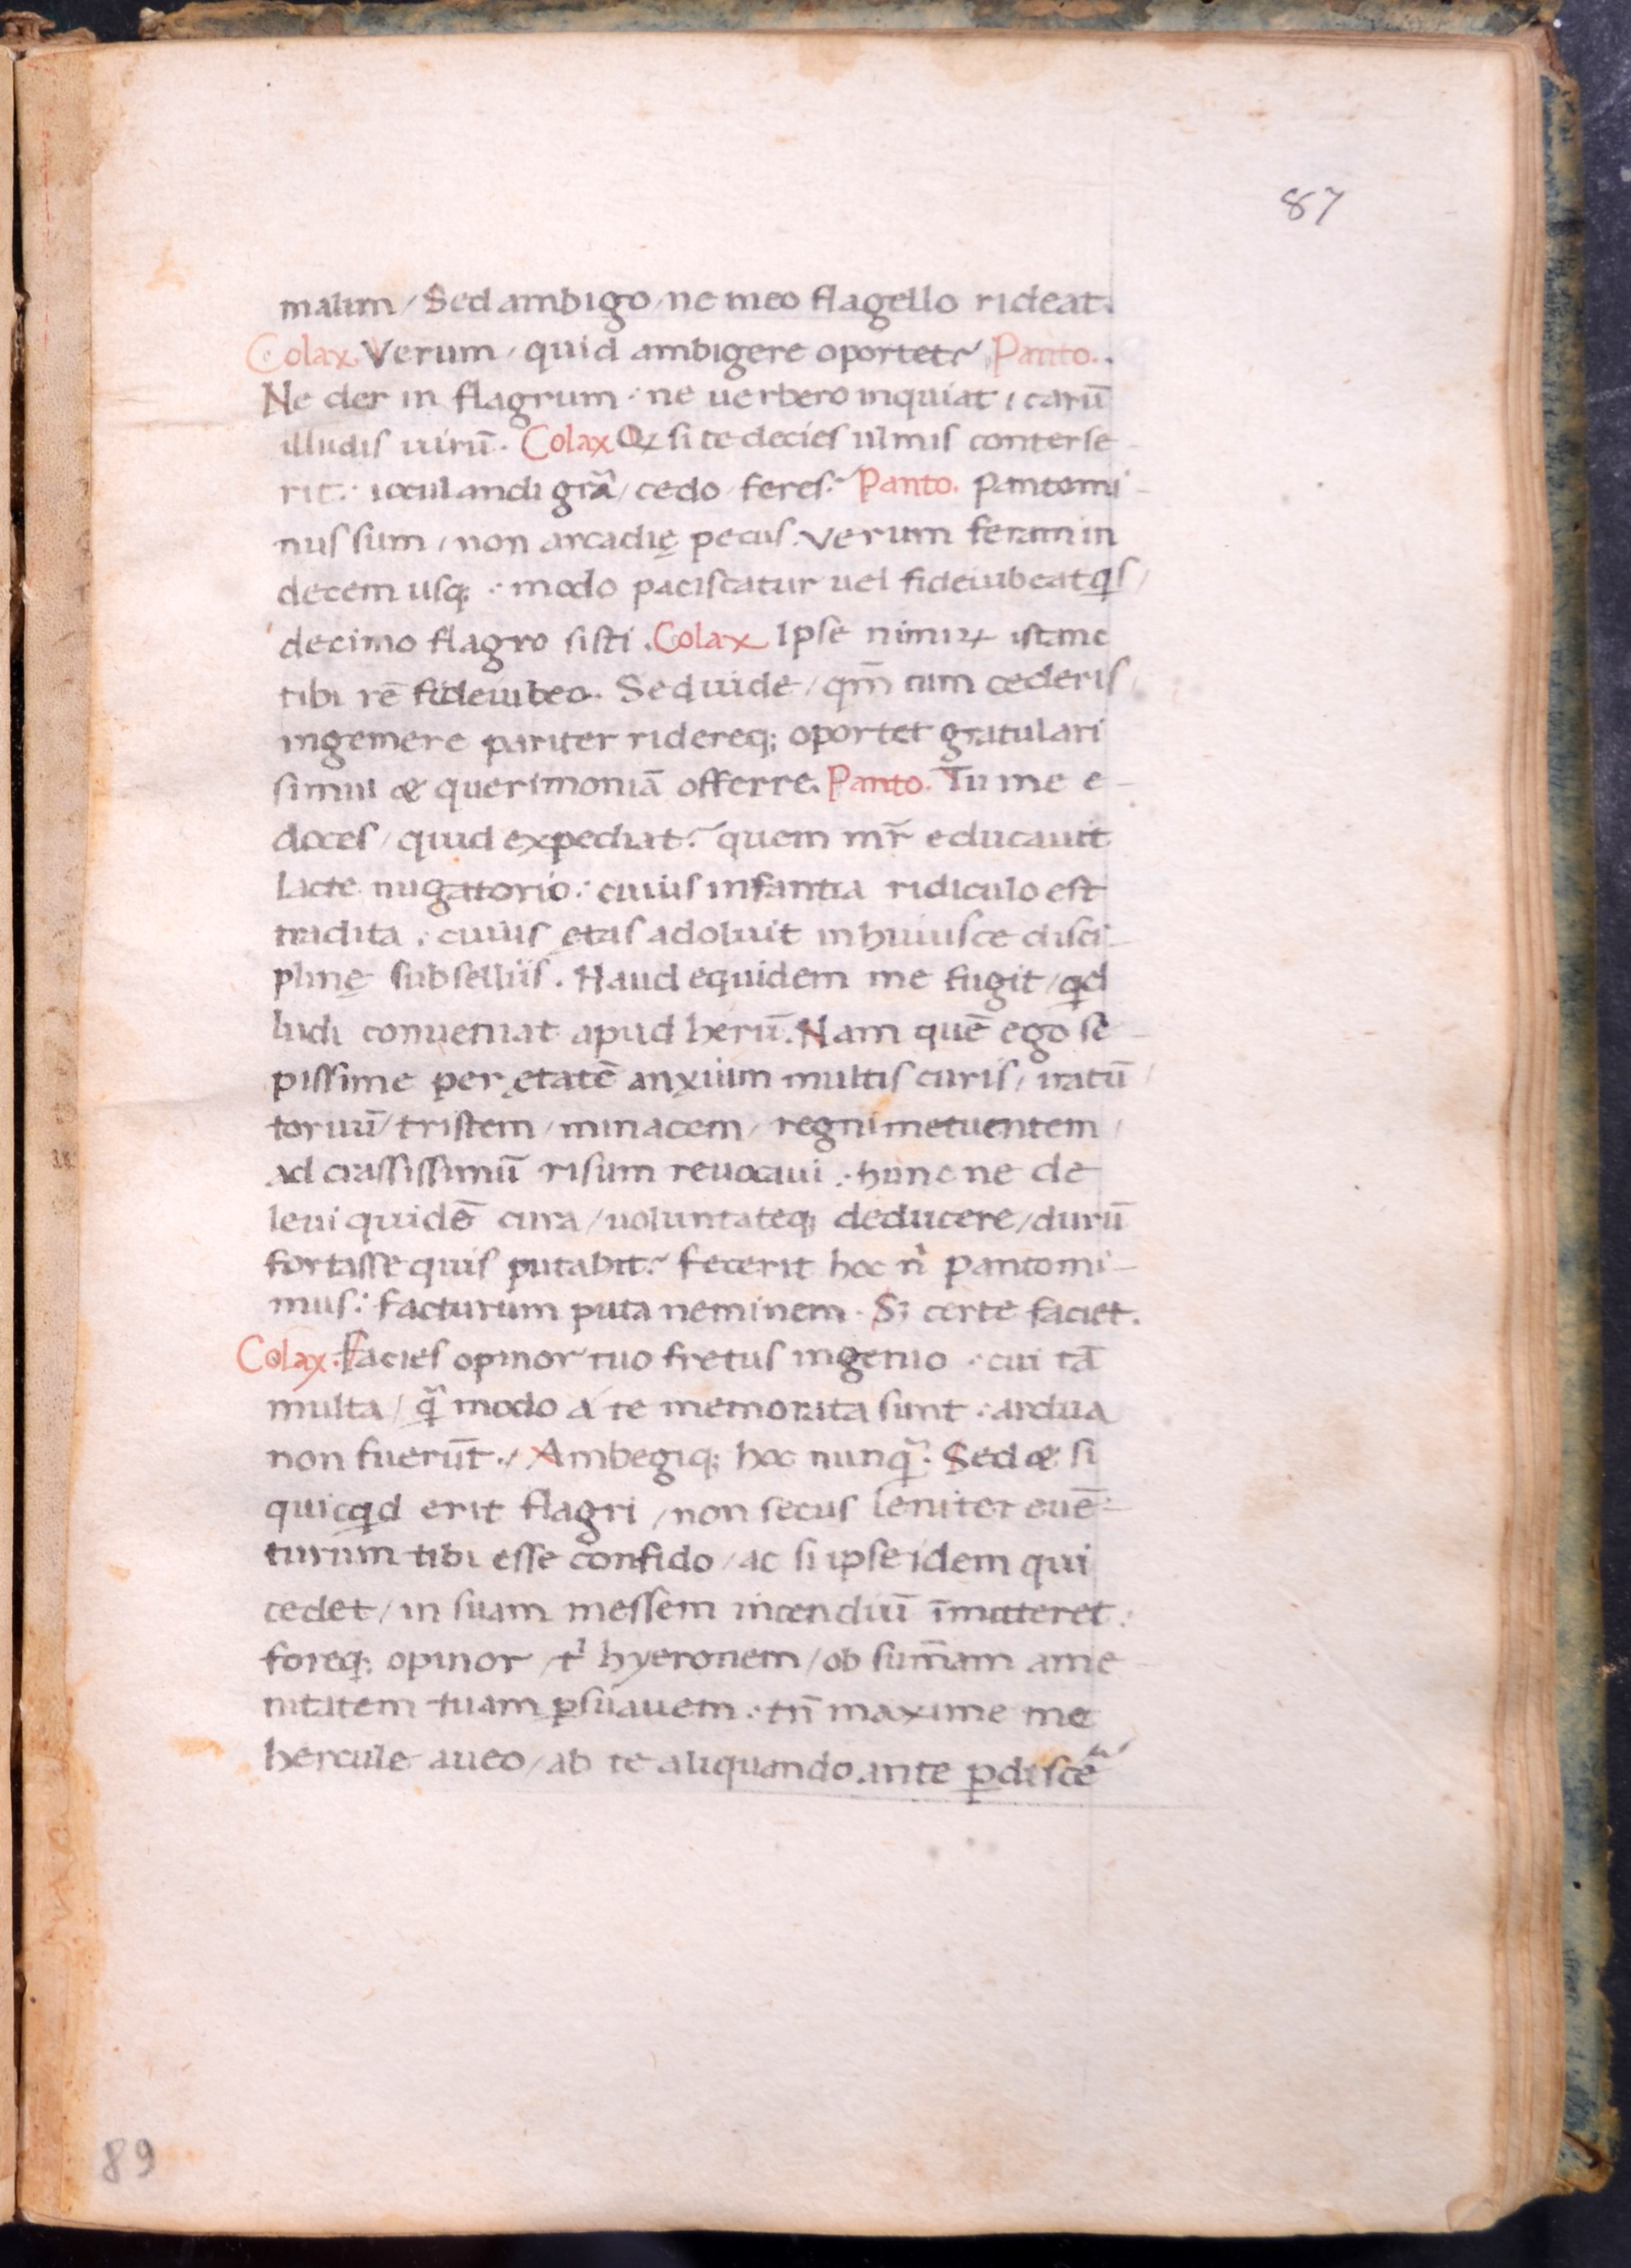 87
malim / Sed ambigo / ne meo flagello rideat.
Colax. Verum / quid ambigere oportet? Panto.
Ne der in flagrum : ne uerbero inquiat / carū
illudis uirū. Colax Qꝫ si te decies ulmis conterse-
rit : ioculandi grã / cedo / feres? Panto. Pantomi-
nus sum / non arcadię pecus. Verum feram in
decem usq; : modo paciscatur uel fideiubeat qͥs /
decimo flagro sisti. Colax Ipse nimiꝝ istanc
tibi rē fideiubeo. Sed uide / qm̄ cum cederis /
ingemere pariter ridereq; oportet gratulari
simul & querimoniā offerre. Panto. Tu me e-
doces / quid expediat? quem mr̄ educauit
lacte nugatorio : cuius infantia ridiculo est
tradita : cuius ętas adoluit in huiusce disci-
plinę subselliis. Haud equidem me fugit / qd
ludi conueniat apud herū. Nam quē ego sę-
pissime per ętatē anxium multis curis / iratū /
toruū / tristem / minacem / regni metuentem /
ad crassissimū risum reuocaui : hunc ne de
leui quidē cura / uoluntateq; deducere / durū
fortasse quis putabit? fecerit hoc nͥ Pantomi-
mus : facturum puta neminem. Sꝫ certe faciet.
Colax. Facies opinor tuo fretus ingenio : cui tā
multa / q̃ modo a te memorata sunt : ardua
non fuerūt. / Ambegiq; hoc nunq̃. Sed & si
quicqd erit flagri / non secus leniter euē-
turum tibi esse confido / ac si ipse idem qui
cedet / in suam messem incendiū īmitteret :
foreq; opinor / tͥ hyeronem / ob sum̄am ame-
nitatem tuam ꝑsuauem : tn̄ maxime me
hercule aueo / ab te aliquando ante ꝑdiscē
89